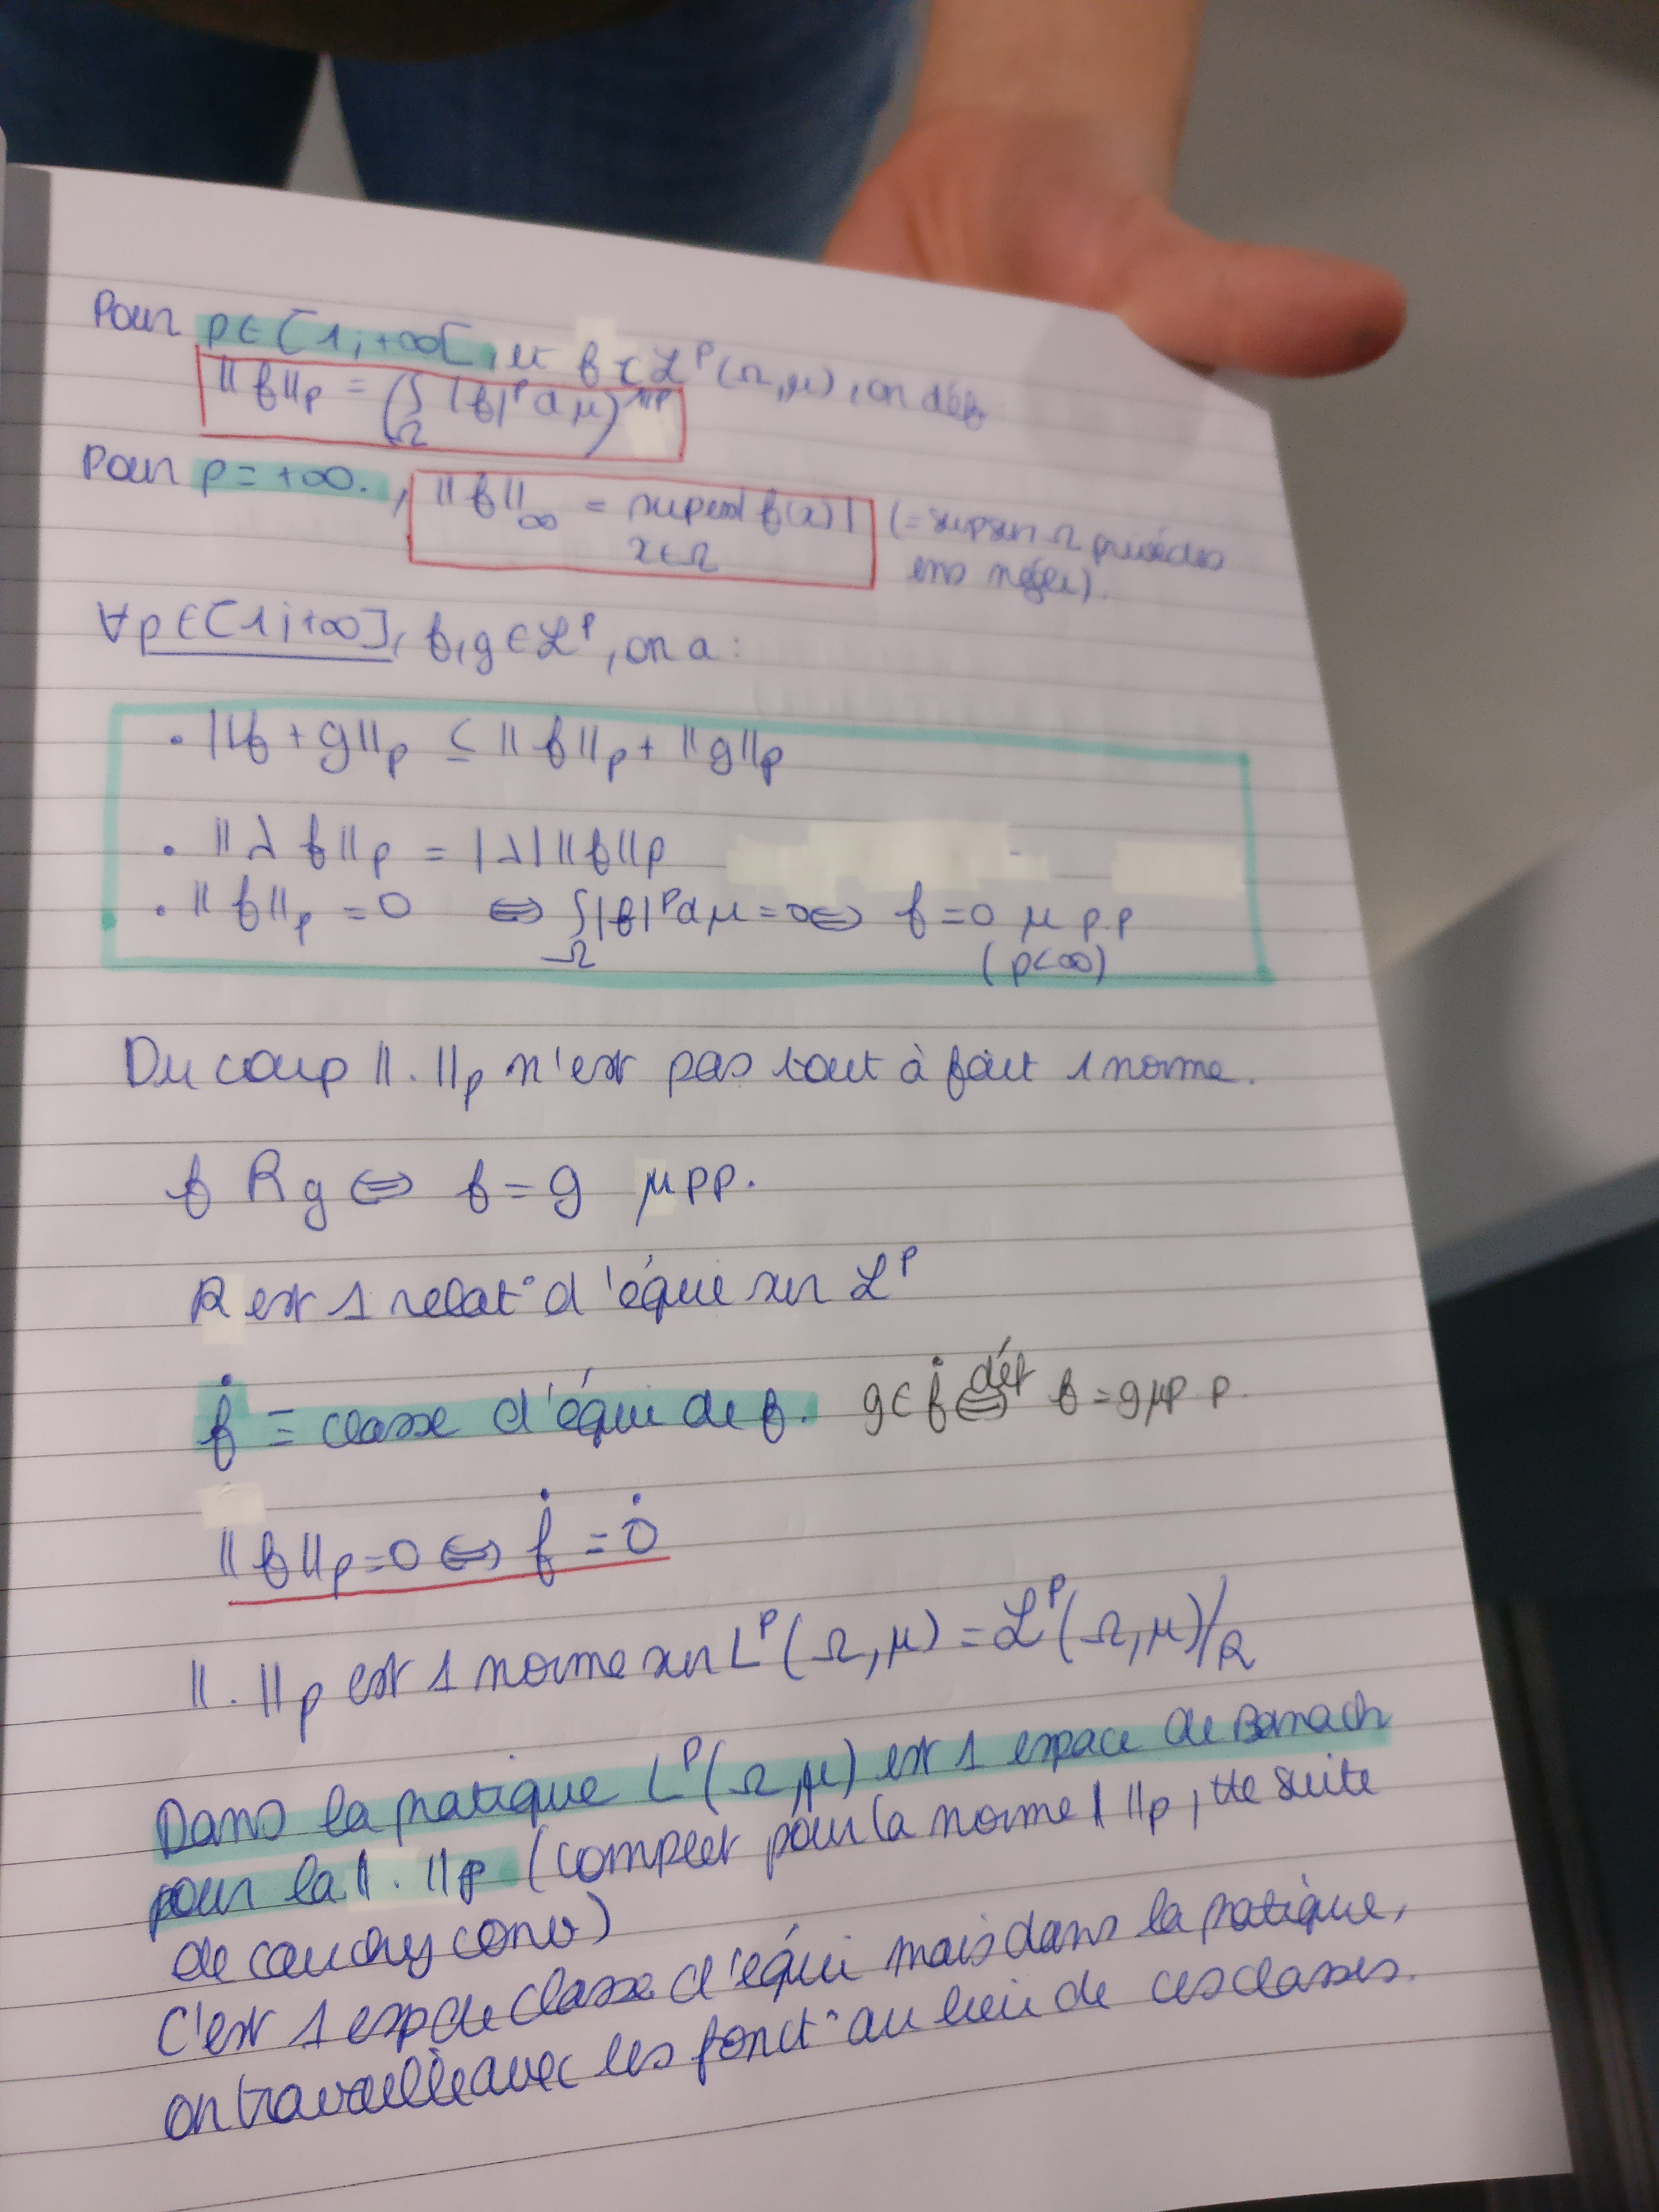 Pour p ∈ [1, +∞[, et f ∈ ℒᵖ(Ω,μ), on déf
‖f‖ₚ = (∫_Ω |f|ᵖ dμ)^{1/p}
Pour p = +∞, ‖f‖_∞ = supess |f(x)| (= sup sur Ω privé des
x∈Ω ens néglig).
∀p ∈ [1; +∞], f,g ∈ ℒᵖ, on a :
• ‖f + g‖ₚ ≤ ‖f‖ₚ + ‖g‖ₚ
• ‖λ f‖ₚ = |λ| ‖f‖ₚ
• ‖f‖ₚ = 0 ⇔ ∫_Ω |f|ᵖ dμ = 0 ⇔ f = 0 μ p.p
(p<∞)
Du coup ‖.‖ₚ n'est pas tout à fait 1 norme.
f R g ⇔ f = g μ pp.
R est 1 relat° d'équi sur ℒᵖ
ḟ = classe d'équi de f. g ∈ ḟ ⇔ déf f = g μ p p.
‖f‖ₚ = 0 ⇔ ḟ = 0̇
‖.‖ₚ est 1 norme sur Lᵖ(Ω,μ) = ℒᵖ(Ω,μ)/R
Dans la pratique Lᵖ(Ω,μ) est 1 espace de Banach
pour la ‖.‖ₚ (complet pour la norme ‖ ‖ₚ, tte suite
de cauchy conv)
C'est 1 esp de classe d'équi mais dans la pratique,
on travaille avec les fonct° au lieu de ces classes.